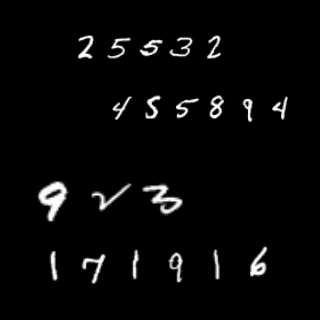 25532
455894
923
171916